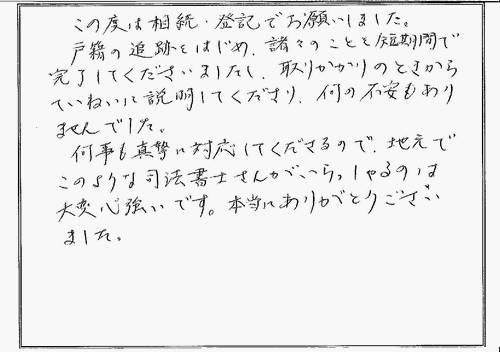 この度は相続・登記でお願いしました。
戸籍の追跡をはじめ、諸々のことを短期間で
完了してくださいましたし、取りかかりのときから
ていねいに説明してくださり、何の不安もあり
ませんでした。
何事も真摯に対応してくださるので、地元で
このような司法書士さんがいらっしゃるのは
大変心強いです。本当にありがとうござい
ました。